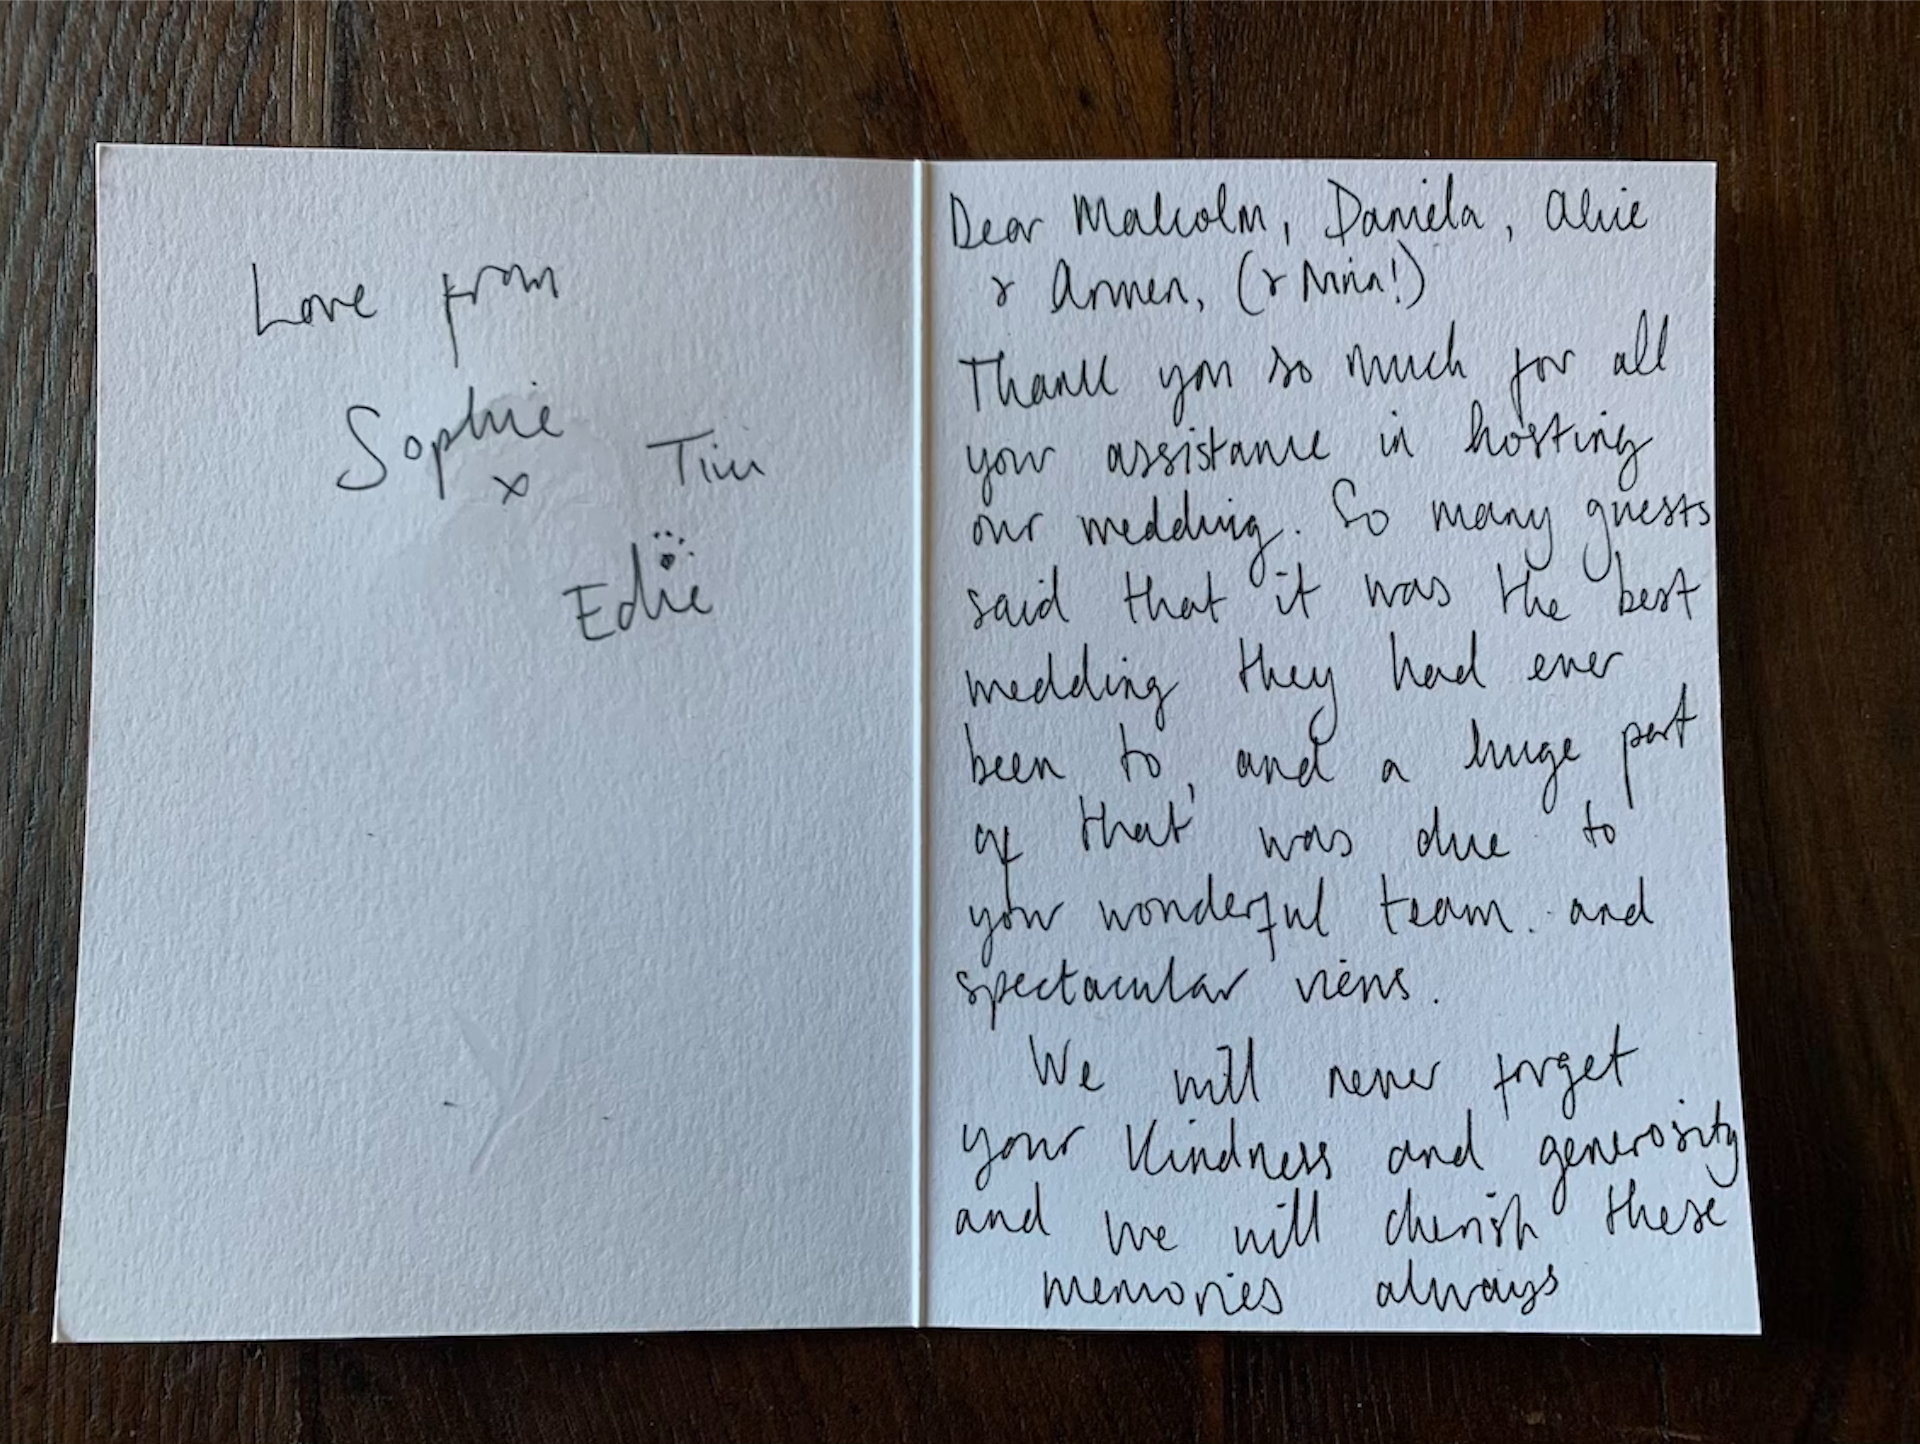 Dear Malcolm, Daniela, Alice
& Armen, (& Nina!)
Thank you so much for all
your assistance in hosting
our wedding. So many guests
said that it was the best
wedding they had ever
been to, and a huge part
of that was due to
your wonderful team. and
spectacular views.
We will never forget
your kindness and generosity
and we will cherish these
memories always
Love from
Sophie
x
Tim
Edie